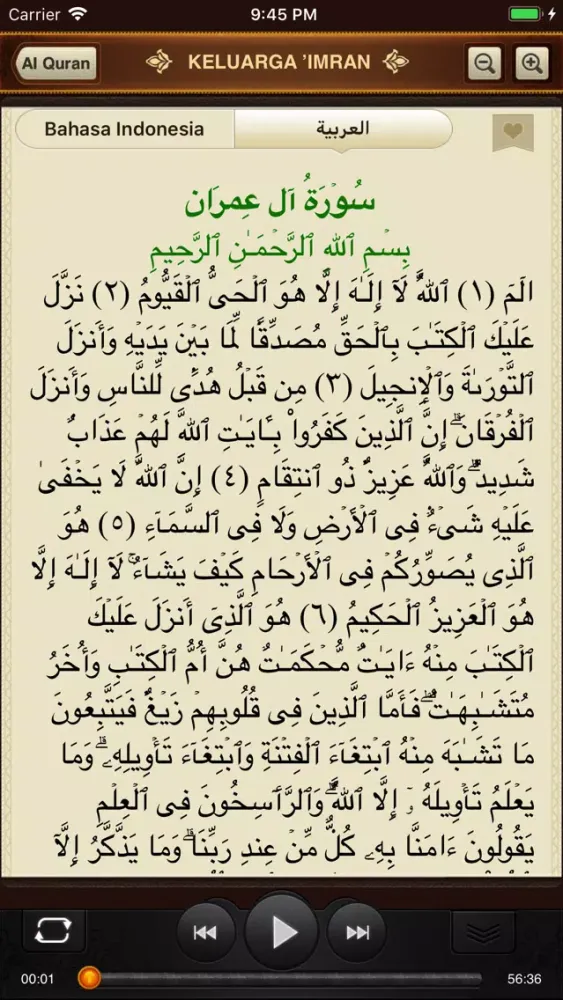 Carrier 9:45 PM
Al Quran KELUARGA 'IMRAN
Bahasa Indonesia العربية
سُورَةُ آل عِمرَان
بِسۡمِ ٱللهِ ٱلرَّحۡمَـٰنِ ٱلرَّحِيمِ
الٓمٓ (١) ٱللهُ لَآ إِلَـٰهَ إِلَّا هُوَ ٱلۡحَىُّ ٱلۡقَيُّومُ (٢) نَزَّلَ
عَلَيۡكَ ٱلۡكِتَـٰبَ بِٱلۡحَقِّ مُصَدِّقً۬ا لِّمَا بَيۡنَ يَدَيۡهِ وَأَنزَلَ
ٱلتَّوۡرَٮٰةَ وَٱلۡإِنجِيلَ (٣) مِن قَبۡلُ هُدً۬ى لِّلنَّاسِ وَأَنزَلَ
ٱلۡفُرۡقَانَ‌ۗ إِنَّ ٱلَّذِينَ كَفَرُواْ بِـَٔايَـٰتِ ٱللهِ لَهُمۡ عَذَابٌ۬
شَدِيدٌ۬‌ۗ وَٱللهُ عَزِيزٌ۬ ذُو ٱنتِقَامٍ (٤) إِنَّ ٱللهَ لَا يَخۡفَىٰ
عَلَيۡهِ شَىۡءٌ۬ فِى ٱلۡأَرۡضِ وَلَا فِى ٱلسَّمَآءِ (٥) هُوَ
ٱلَّذِى يُصَوِّرُڪُمۡ فِى ٱلۡأَرۡحَامِ كَيۡفَ يَشَآءُ‌ۚ لَآ إِلَـٰهَ إِلَّا
هُوَ ٱلۡعَزِيزُ ٱلۡحَكِيمُ (٦) هُوَ ٱلَّذِىٓ أَنزَلَ عَلَيۡكَ
ٱلۡكِتَـٰبَ مِنۡهُ ءَايَـٰتٌ۬ مُّحۡكَمَـٰتٌ هُنَّ أُمُّ ٱلۡكِتَـٰبِ وَأُخَرُ
مُتَشَـٰبِهَـٰتٌ۬‌ۖ فَأَمَّا ٱلَّذِينَ فِى قُلُوبِهِمۡ زَيۡغٌ۬ فَيَتَّبِعُونَ
مَا تَشَـٰبَهَ مِنۡهُ ٱبۡتِغَآءَ ٱلۡفِتۡنَةِ وَٱبۡتِغَآءَ تَأۡوِيلِهِۦ‌ۗ وَمَا
يَعۡلَمُ تَأۡوِيلَهُ ۥۤ إِلَّا ٱللهُ‌ۗ وَٱلرَّٲسِخُونَ فِى ٱلۡعِلۡمِ
يَقُولُونَ ءَامَنَّا بِهِۦ كُلٌّ۬ مِّنۡ عِندِ رَبِّنَا‌ۗ وَمَا يَذَّكَّرُ إِلَّآ
00:01 56:36